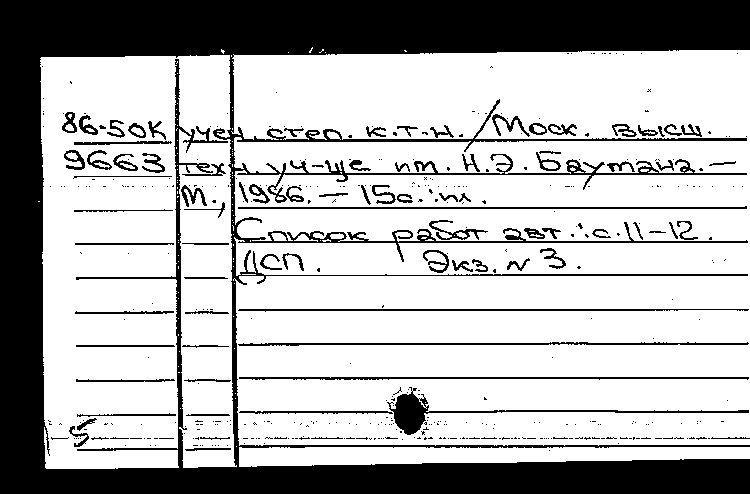 86-50К учен. степ. к.т.н. / Моск. высш.
9663 техн. уч-ще им. Н.Э. Баумана. —
М., 1986. — 15с.: ил.
Список работ авт.: с. 11-12.
ДСП. Экз. N 3.
5